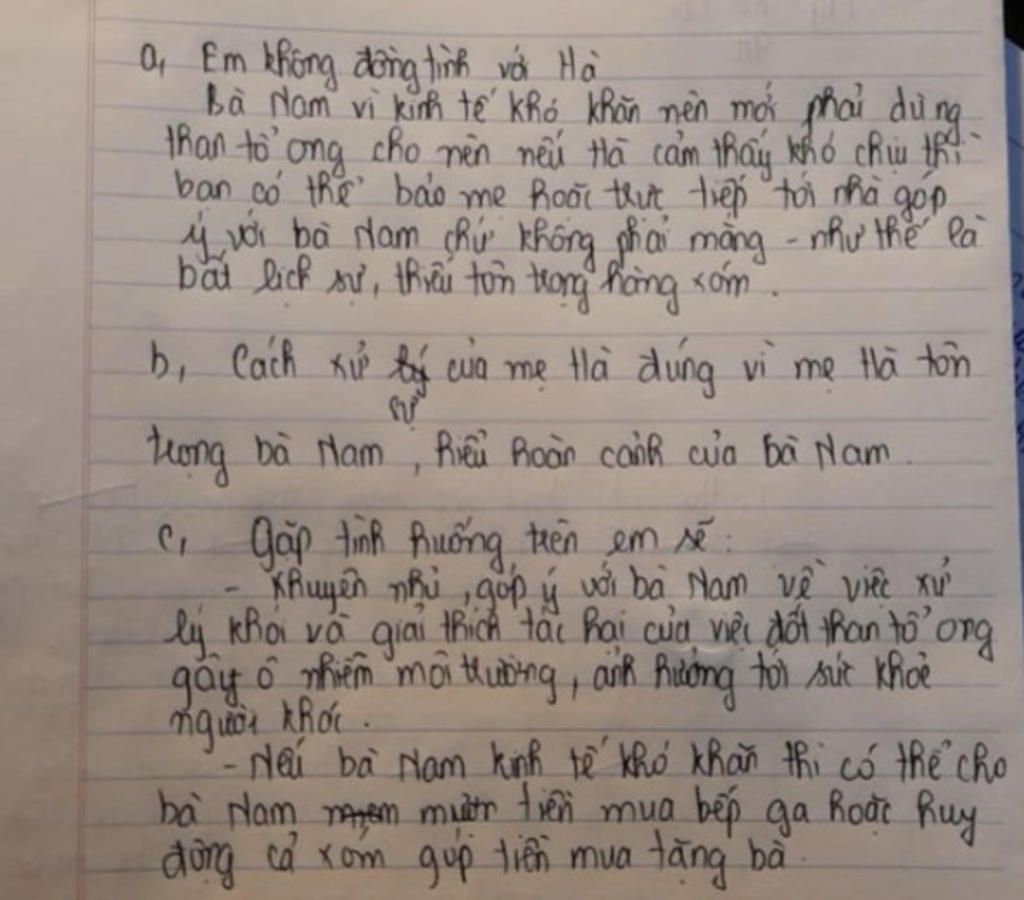 a, Em không đồng tình với Hà
Bà Nam vì kinh tế khó khăn nên mới phải dùng
than tổ ong cho nên nếu Hà cảm thấy khó chịu thì
bạn có thể bảo mẹ hoặc trực tiếp tới nhà góp
ý với bà Nam chứ không phải mắng - như thế là
bất lịch sự, thiếu tôn trọng hàng xóm.
b, Cách xử sự của mẹ Hà đúng vì mẹ Hà tôn
trọng bà Nam, hiểu hoàn cảnh của bà Nam.
c, Gặp tình huống trên em sẽ:
- Khuyên nhủ, góp ý với bà Nam về việc xử
lý khói và giải thích tác hại của việc đốt than tổ ong
gây ô nhiễm môi trường, ảnh hưởng tới sức khỏe
người khác.
- Nếu bà Nam kinh tế khó khăn thì có thể cho
bà Nam mượn tiền mua bếp ga hoặc huy
động cả xóm góp tiền mua tặng bà.